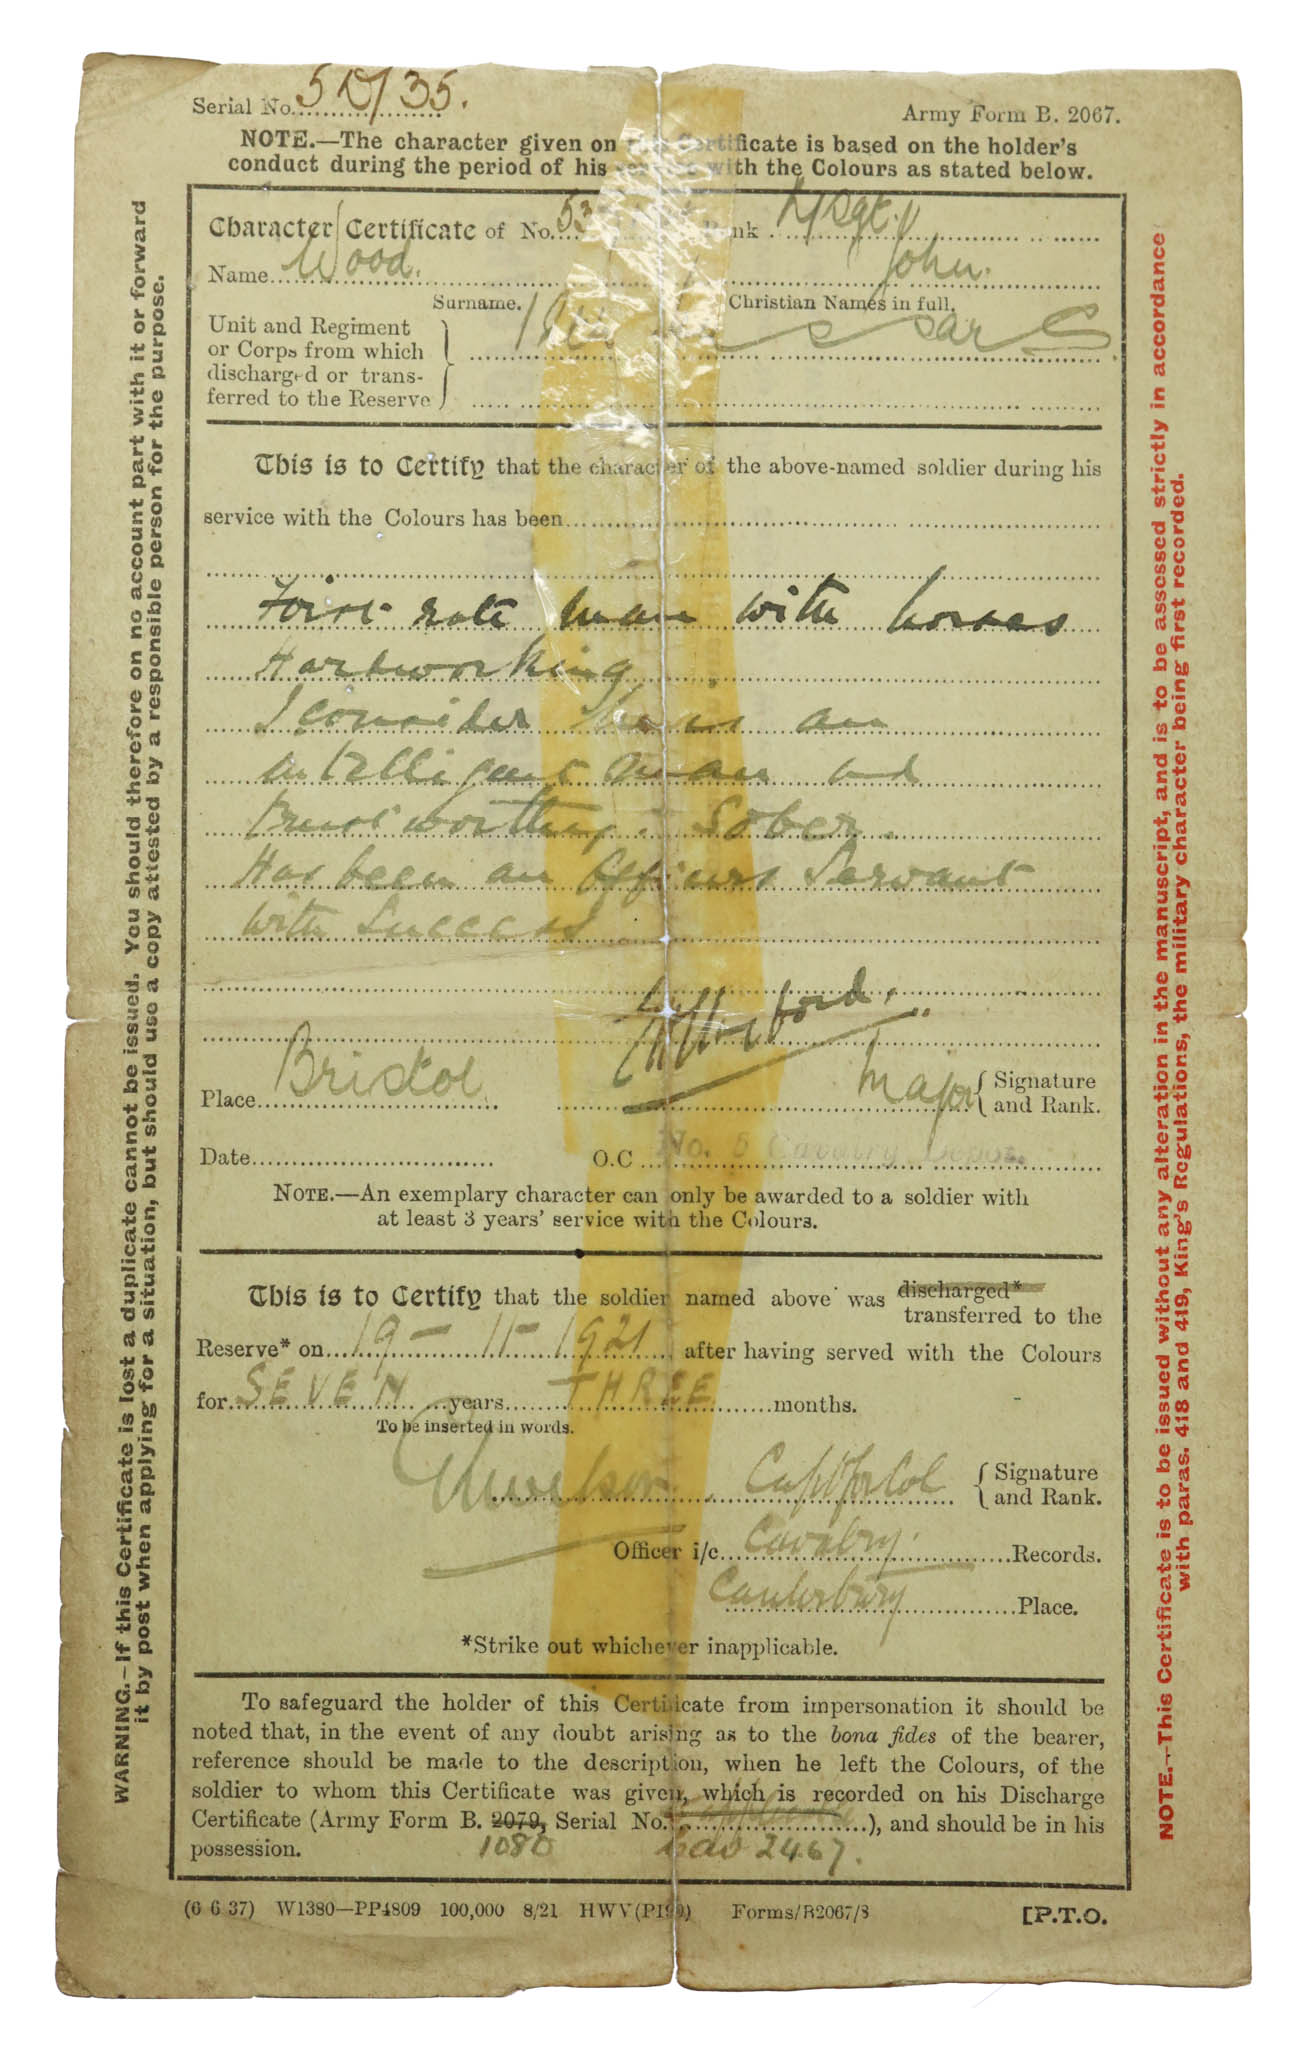 Serial No. 5 /35.
Army Form B. 2067.
NOTE.—The character given on this Certificate is based on the holder's
conduct during the period of his service with the Colours as stated below.
Character Certificate of No. 53 Rank Sgt.
Name Wood. John.
Surname. Christian Names in full.
Unit and Regiment
or Corps from which
discharged or trans-
ferred to the Reserve
This is to Certify that the character of the above-named soldier during his
service with the Colours has been
First rate man with horses
Hardworking
I consider him an
intelligent man and
trustworthy. Sober.
Has been an Officers Servant
with success
Place Bristol Major Signature
and Rank.
Date O.C No. 5 Cavalry Depot.
NOTE.—An exemplary character can only be awarded to a soldier with
at least 3 years' service with the Colours.
This is to Certify that the soldier named above was discharged*
transferred to the
Reserve* on 19-11-1921 after having served with the Colours
for SEVEN years THREE months.
To be inserted in words.
Capt for Col Signature
and Rank.
Officer i/c Cavalry Records.
Canterbury Place.
*Strike out whichever inapplicable.
To safeguard the holder of this Certificate from impersonation it should be
noted that, in the event of any doubt arising as to the bona fides of the bearer,
reference should be made to the description, when he left the Colours, of the
soldier to whom this Certificate was given, which is recorded on his Discharge
Certificate (Army Form B. 2079, Serial No. ), and should be in his
possession. 1080 2467.
(6 6 37) W1380—PP4809 100,000 8/21 HWV(P199) Forms/B2067/8
[P.T.O.
WARNING.—If this Certificate is lost a duplicate cannot be issued. You should therefore on no account part with it or forward
it by post when applying for a situation, but should use a copy attested by a responsible person for the purpose.
NOTE.—This Certificate is to be issued without any alteration in the manuscript, and is to be assessed strictly in accordance
with paras. 418 and 419, King's Regulations, the military character being first recorded.